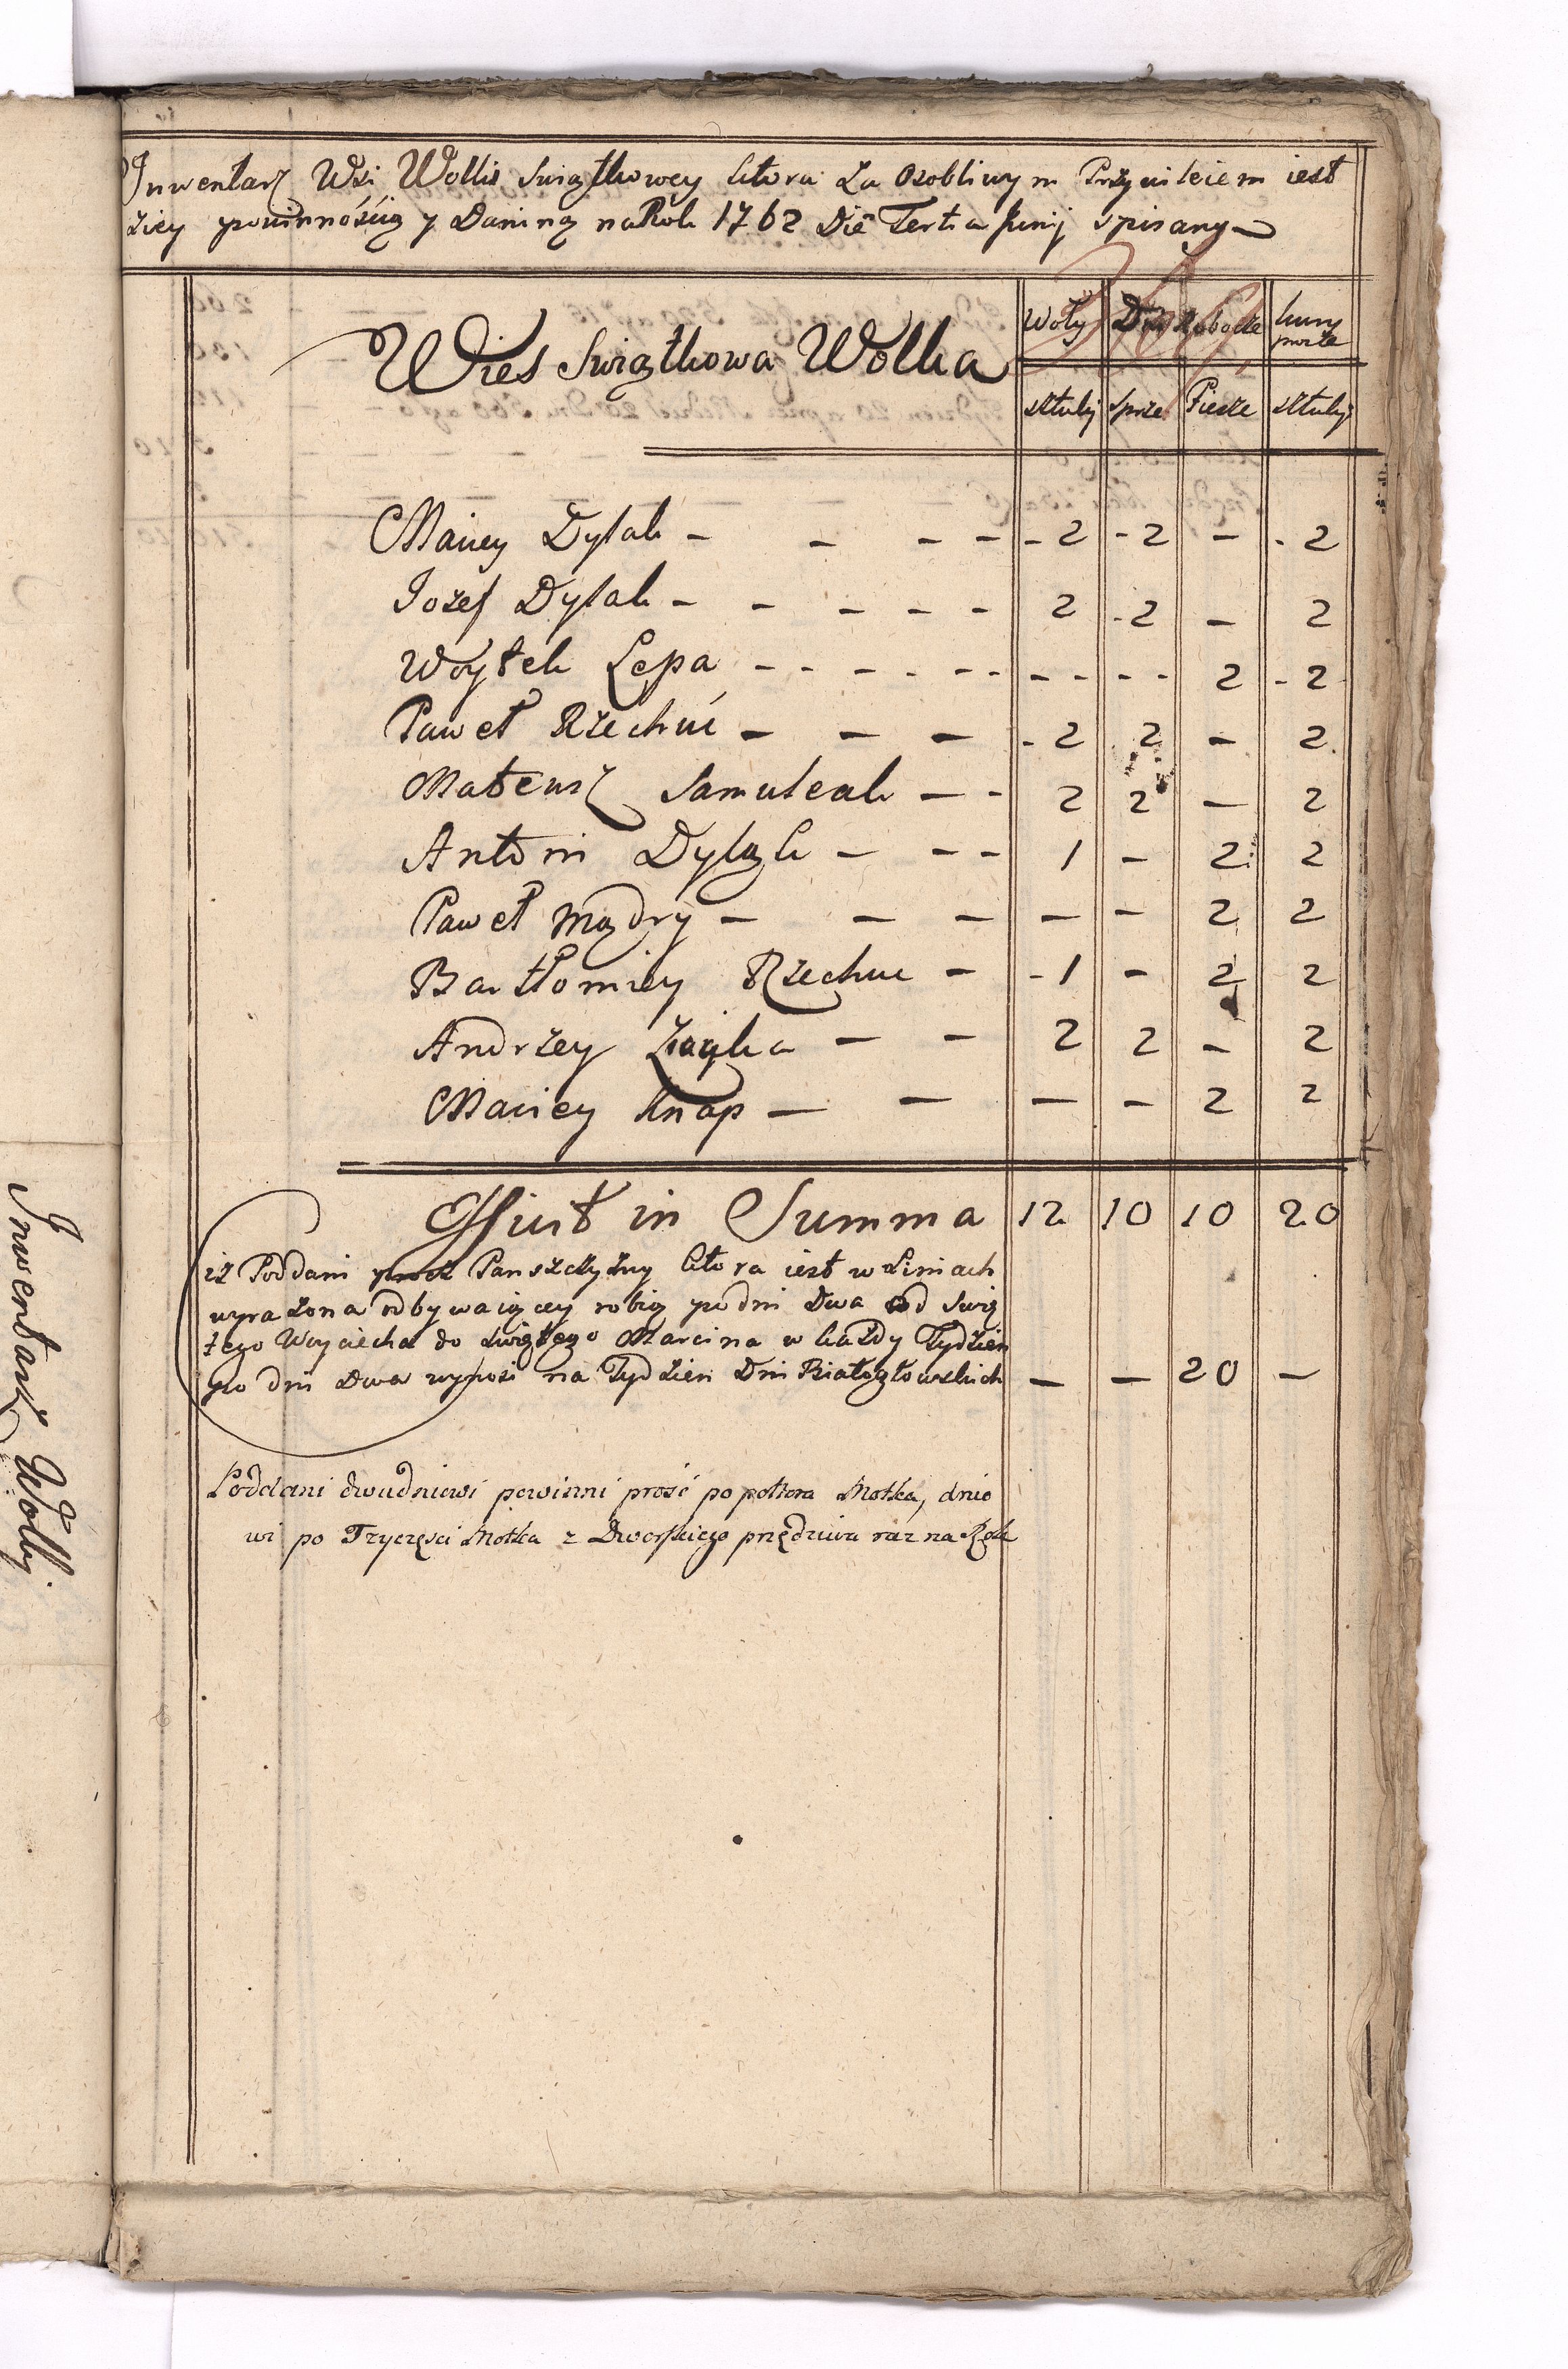 Inwentarz Wsi Wolki Swiątkowey ktora za Osobliwym Przywileiem iest
ziey powinnóścią y Daniną na Rok 1762 Die Tertia Junij spisany
Wies Swiątkowa Wolka
Woły Dni Robocze kury
sztuki sprze Piesze sztuki
Maciey Dytak - - - - - 2 - 2 - - 2
Jozef Dytak - - - - - 2 - 2 - 2
Woytek Lepa - - - - - - - - - - 2 - 2
Paweł Rzechuć - - - - 2 2 - 2
Mateusz Samuleak - - 2 2 - 2
Antoni Dylągk - - - 1 - 2 2
Paweł Mądry - - - - - 2 2
Bartłomiey Rzechuc - - 1 - 2 2
Andrzey Ziayka - - 2 2 - 2
Maciey Knap - - - - 2 2
Efficit in Summa 12 10 10 20
iż Poddani procz Panszczyzny ktora iest w Liniach
wyrażona odbywaiącey robią po dni Dwa od Swię
tego Woyciecha do Swiętego Marcina w każdy Tydzien
po dni Dwa wynosi na Tydzien Dni Białogłowskich - - 20 -
Poddani dwudniowi powinni prząść po poltora Motka, dnio
wi po Trzyczęści Motka z Dworskiego przędziwa raz na Rok
Inwentarz Wolki